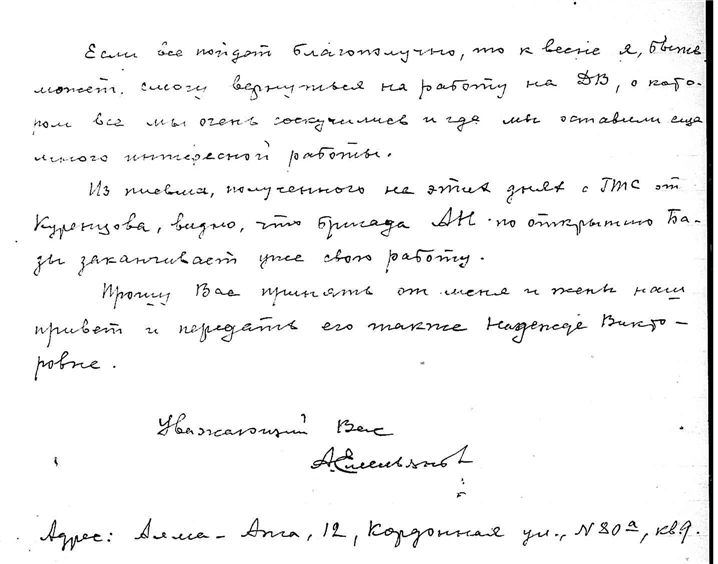 Если все пойдет благополучно, то к весне я, быть
может, смогу вернуться на работу на ДВ, о кото-
ром все мы очень соскучились и где мы оставили еще
много интересной работы.
Из письма, полученного на этих днях с ГТС от
Куренцова, видно, что бригада АН по открытию Ба-
зы заканчивает уже свою работу.
Прошу Вас принять от меня и жены наш
привет и передать его также Надежде Викто-
ровне.
Уважающий Вас
А. Емельянов
Адрес: Алма-Ата, 12, Кордонная ул., N 80а, кв. 9.